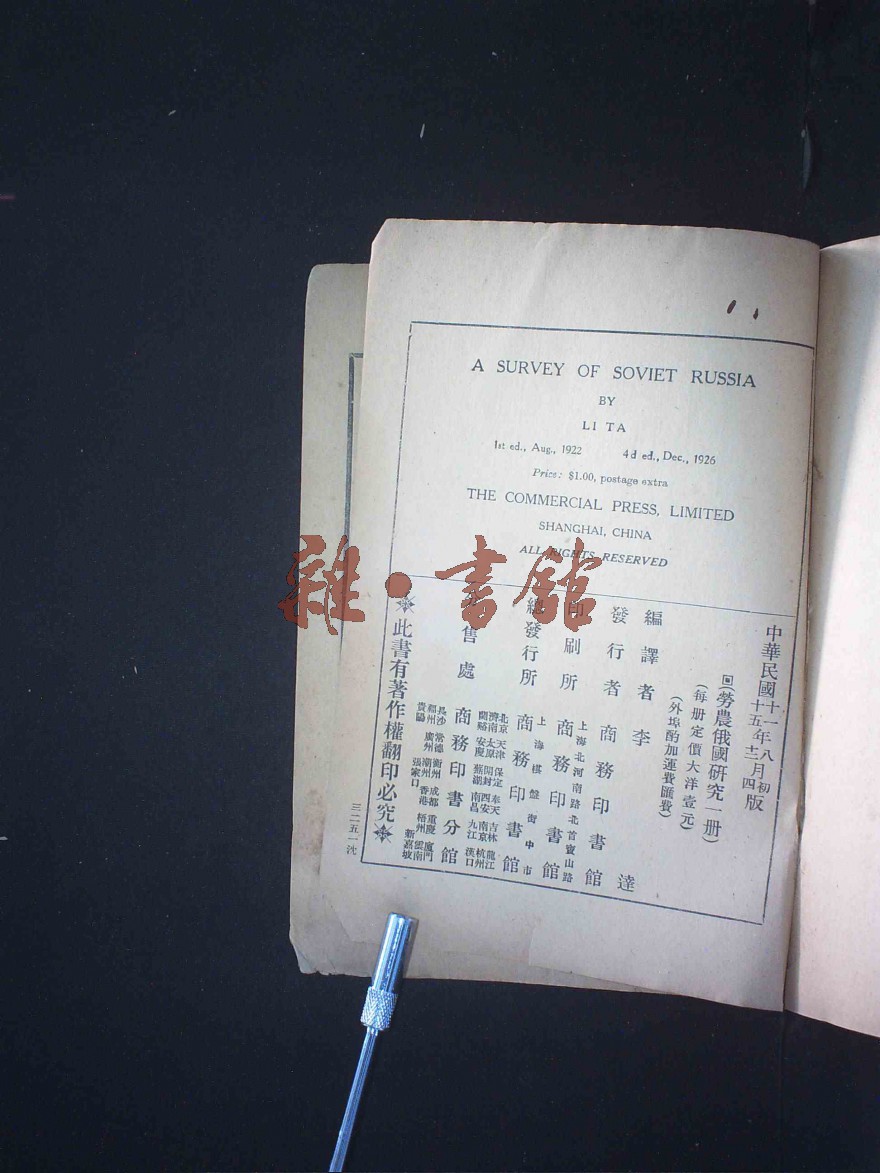 A SURVEY OF SOVIET RUSSIA
BY
LI TA
1st ed., Aug., 1922 4d ed., Dec., 1926
Price: $1.00, postage extra
THE COMMERCIAL PRESS, LIMITED
SHANGHAI, CHINA
ALL RIGHTS RESERVED
雜·書館
中華民國十一年八月初
十五年十二月四版
(勞農俄國研究一册)
(每册定價大洋壹元)
(外埠酌加運費匯費)
編譯者 李達
發行者 商務印書館
上海北河南路北首寶山路
印刷所 商務印書館
上海棋盤街中市
總發行所 商務印書館
北京 天津 保定 奉天 吉林 龍江
濟南 太原 開封 西安 南京 杭州
蘭谿 安慶 蕪湖 南昌 九江 漢口
分售處 商務印書分館
長沙 常德 衡州 成都 重慶 廈門
福州 廣州 潮州 香港 梧州 雲南
貴陽 張家口 新嘉坡
此書有著作權翻印必究
三二五一沈